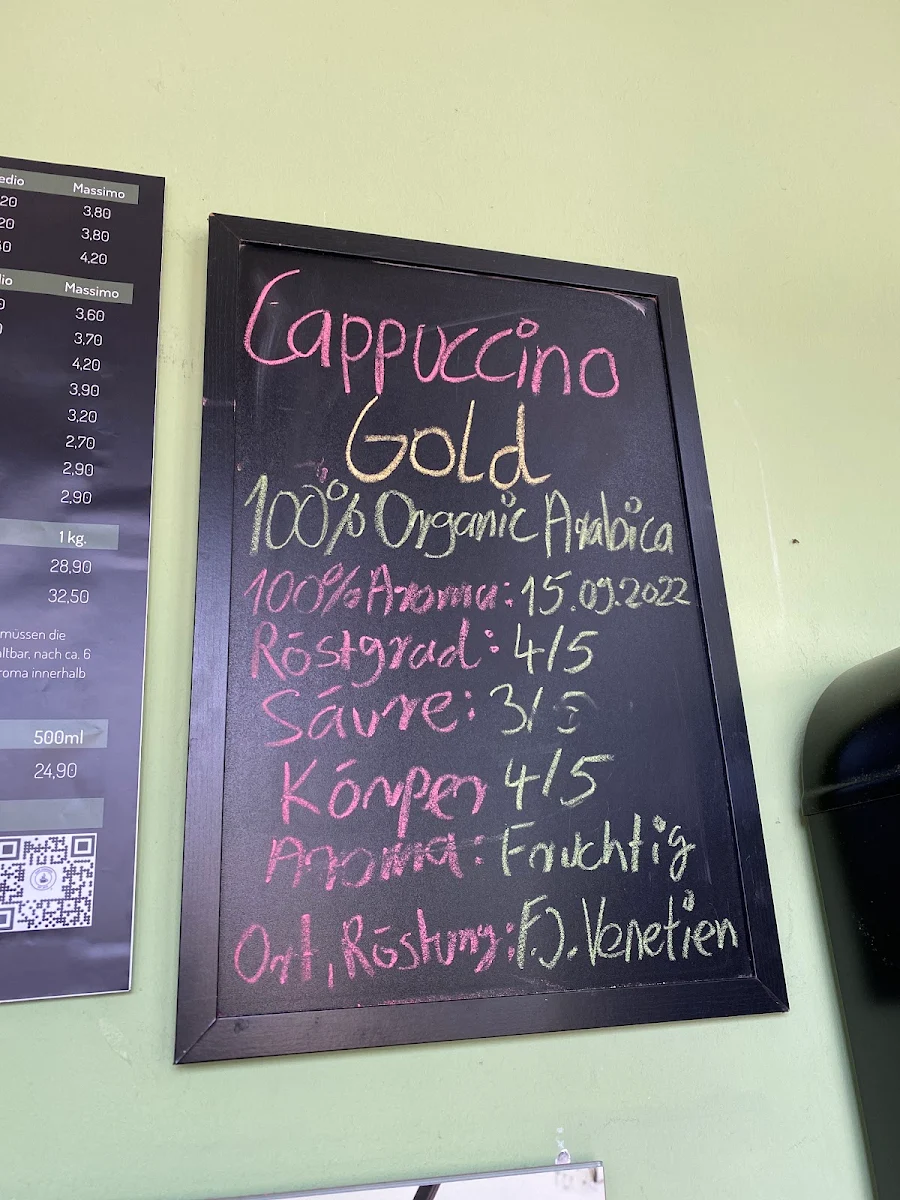 Massimo
3,80
3,80
4,20
Massimo
3,60
3,70
4,20
3,90
3,20
2,70
2,90
2,90
1 kg.
28,90
32,50
müssen die
ltbar, nach ca. 6
roma innerhalb
500ml
24,90
Cappuccino
Gold
100% Organic Arabica
100% Aroma: 15.09.2022
Röstgrad: 4/5
Säure: 3/5
Körper 4/5
Aroma: Fruchtig
Ort, Röstung: F.J. Venetien